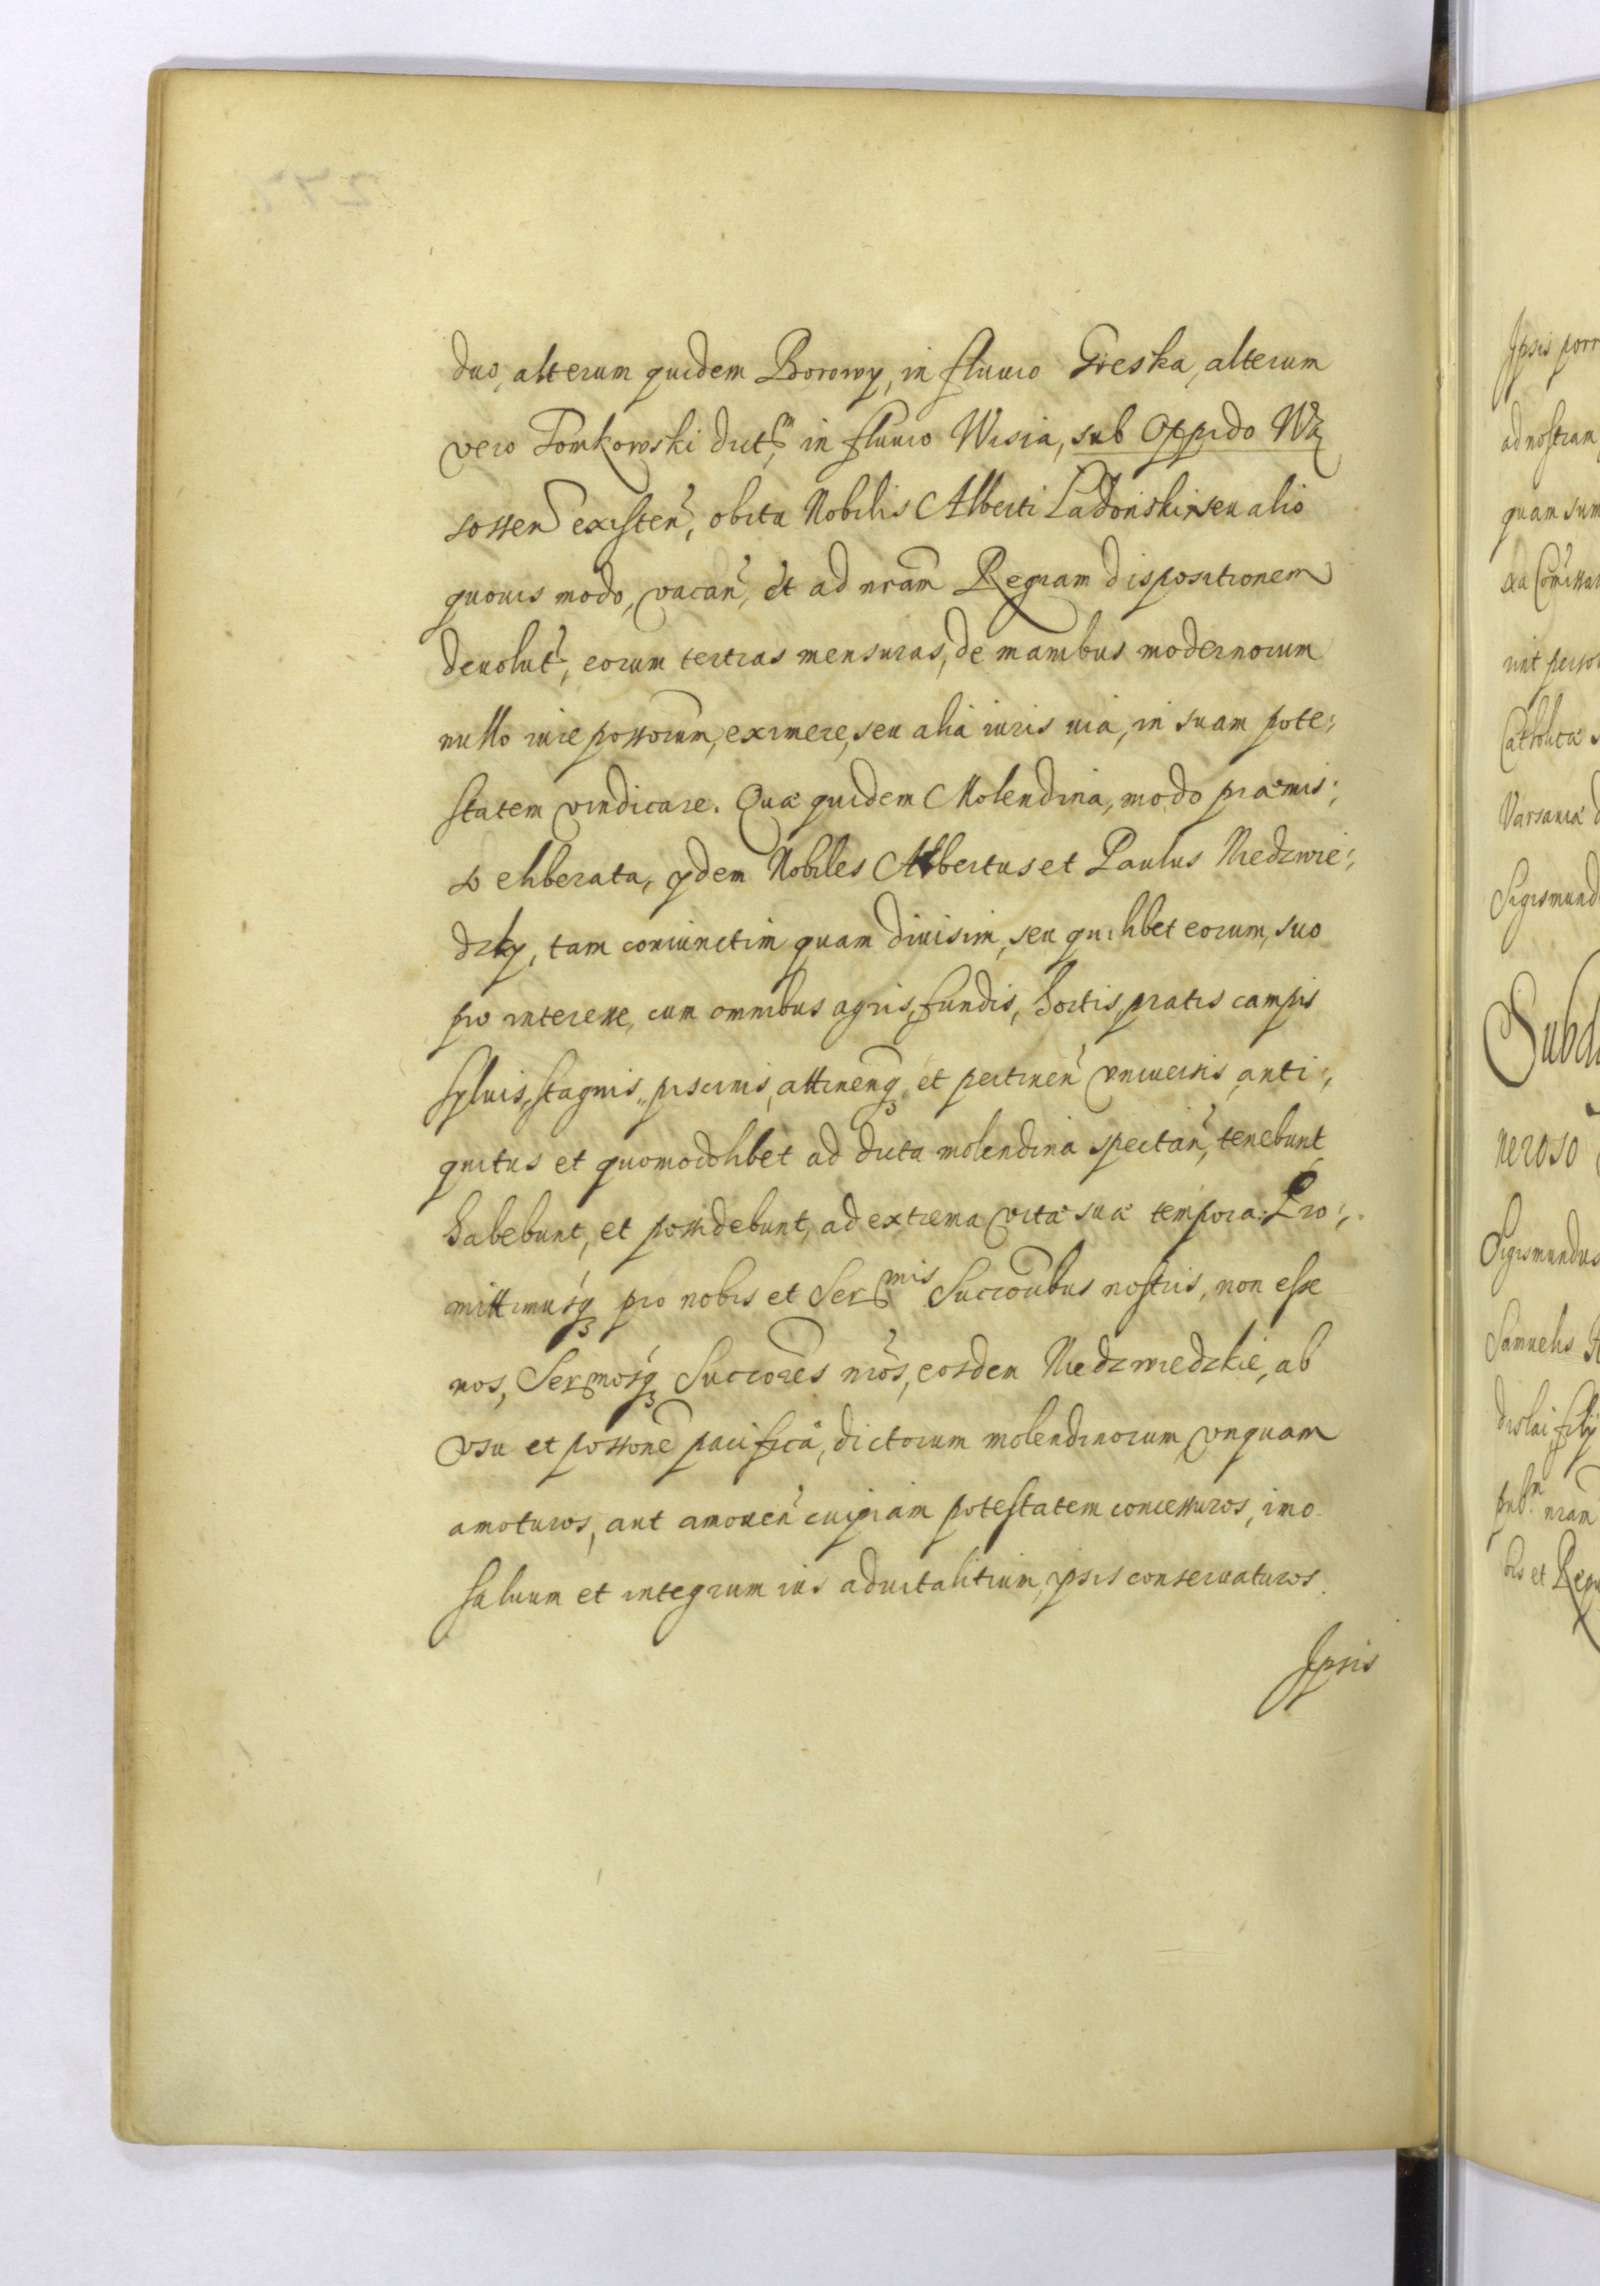 duo, alterum quidem Borowy, in fluuio Greska, alterum
vero Tomkowski dict̃m, in fluuio Wisia, sub Oppido Wą
sossen̄ existen̄, obitu Nobilis Alberti Ladonski, seu alio
quouis modo, vacan̄, et ad nr̄am Regiam dispositionem
deuolut̄, eorum tertias mensuras, de manibus modernorum
nullo iure poss̄orum, eximere, seu alia iuris uia, in suam pote:
statem vindicare. Quæ quidem Molendina, modo præmis:
so eliberata, ydem Nobiles Albertus et Paulus Niedzwie:
dzky, tam coniunctim quam diuisim, seu quilibet eorum, suo
pro interesse, cum omnibus agris, fundis, hortis, pratis campis
syluis, stagnis, piscinis, attinen̄q, et pertinen̄ vniuersis, anti:
quitus et quomodolibet ad dicta molendina spectan̄, tenebunt
habebunt, et possidebunt, ad extrema vitæ suæ tempora. Pro:
mittimusq pro nobis et Ser̄mis Succ̄oribus nostris, non esse
nos, Ser̄mosq Succ̄ores nr̄os, eosdem Niedzwiedzkie, ab
vsu et poss̄one pacifica, dictorum molendinorum vnquam
amoturos, aut amouen̄ cuipiam potestatem concessuros, imo
saluum et integrum ius aduitalitium, ipsis conseruaturos.
Ipsis
Ipsis porr
ad nostram
quam sum
Catholicæ
Varsauiæ
Sigismund
Subd
neroso
Sigismundus
Samuelis
nram
bis et Regn